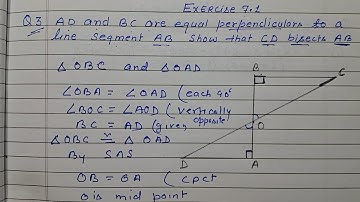 Exercise 7.1
Q3 AD and BC are equal perpendiculars to a
line segment AB Show that CD bisects AB
△ OBC and △ OAD
∠OBA = ∠OAD (each 90°
∠BOC = ∠AOD (vertically
opposite
BC = AD (given
△OBC ≅ △ OAD
By SAS
OB = OA ( cpct
O is mid point
B
C
O
D
A